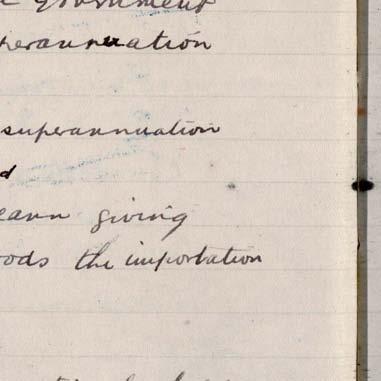 government
perannuation
superannuation
d
eann giving
oods the importation